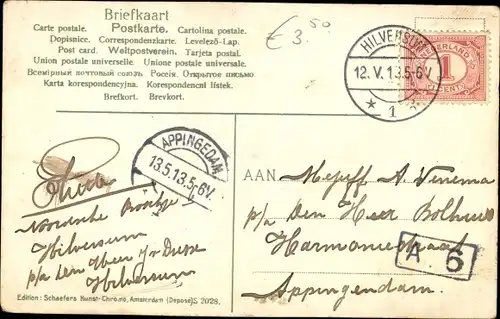 Briefkaart
Carte postale. Postkarte. Cartolina postale.
Dopisnice. Correspondenzkarte. Levelező-Lap.
Post card. Weltpostverein. Tarjeta postal.
Union postale universelle. Unione postale universale.
Всемірный почтовый союзъ. Россія. Открытое письмо
Karta korespondencyjna. Korespondenční lístek.
Brefkort. Brevkort.
€ 3.50
HILVERSUM
12.V.13.5-6V.
* 1
NEDERLAND
1
CENT
APPINGEDAM
13.5.13.5-6V.
Hilversum
p/a den Heer
Hilversum
AAN Mejuff A. Venema
p/a den Heer Bolhuis
Harmoniestraat
A 6
Appingendam.
Edition: Schaefers Kunst-Chromo, Amsterdam (Depose) S 2028.